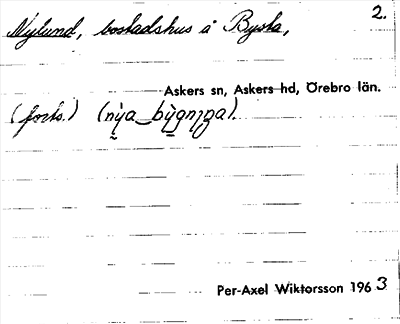 2.
Nylund, bostadshus å Bysta,
Askers sn, Askers hd, Örebro län.
(forts.) (nỳa bỳgnıŋa).
Per-Axel Wiktorsson 1963